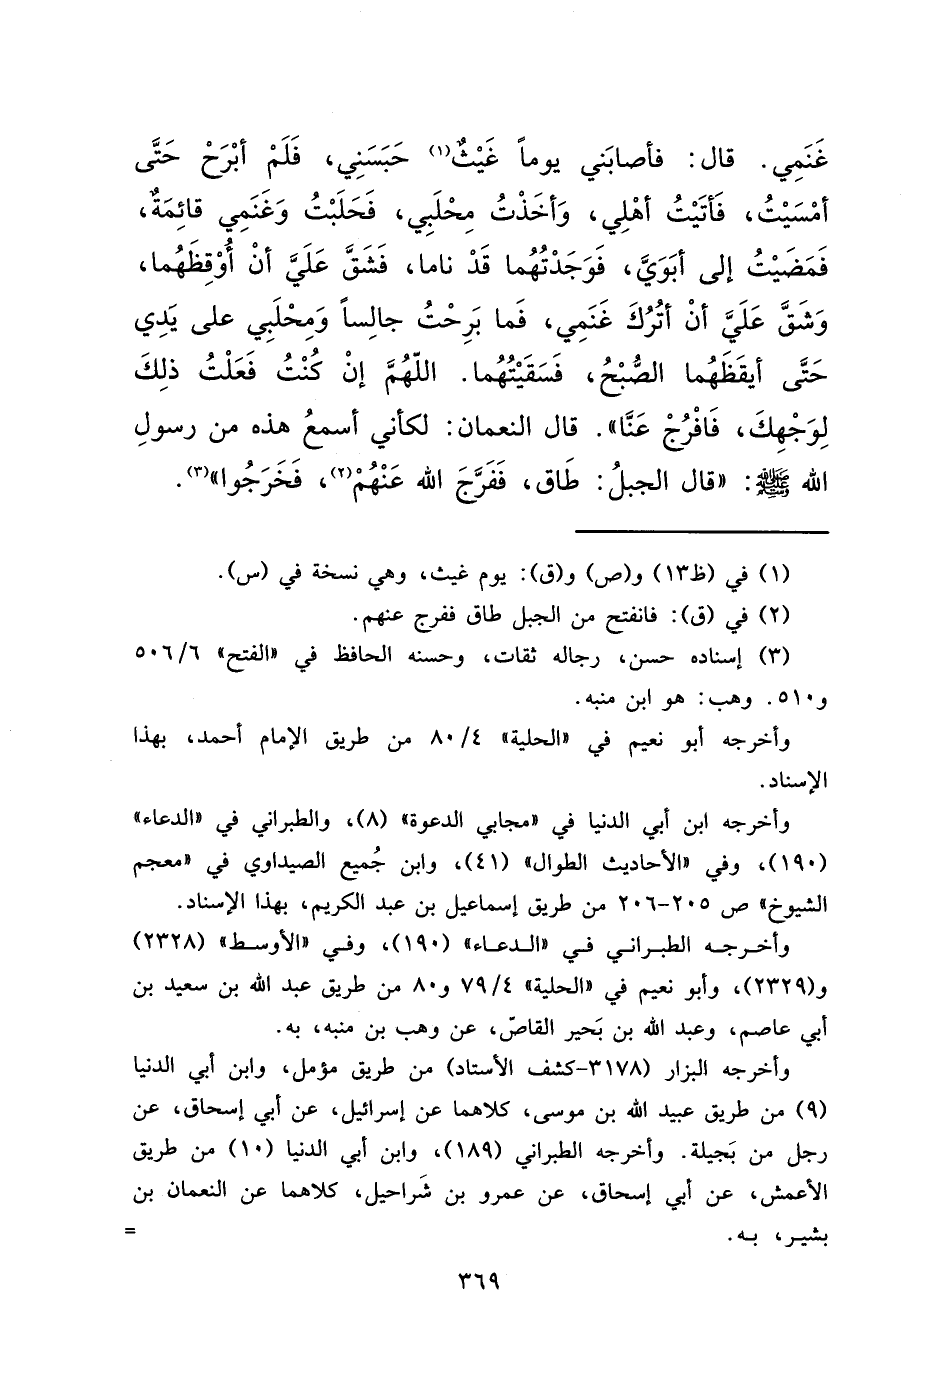 غَنَمِي. قال: فأصابَني يوماً غَيْثٌ(١) حَبَسَنِي، فَلَمْ أبْرَحْ حَتَّى
أمْسَيْتُ، فَأتَيْتُ أهْلِي، وَأخَذْتُ مِحْلَبِي، فَحَلَبْتُ وَغَنَمِي قائِمَةٌ،
فَمَضَيْتُ إلى أبَوَيَّ، فَوَجَدْتُهُما قَدْ ناما، فَشَقَّ عَلَيَّ أنْ أُوْقِظَهُما،
وَشَقَّ عَلَيَّ أنْ أتْرُكَ غَنَمِي، فَما بَرِحْتُ جالِساً وَمِحْلَبِي على يَدِي
حَتَّى أيقَظَهُما الصُّبْحُ، فَسَقَيْتُهُما. اللّهُمَّ إنْ كُنْتُ فَعَلْتُ ذلِكَ
لِوَجْهِكَ، فَافْرُجْ عَنَّا». قال النعمان: لكأني أسمعُ هذه من رسولِ
الله ﷺ: «قال الجبلُ: طَاق، فَفَرَّجَ الله عَنْهُمْ(٢)، فَخَرَجُوا»(٣).
(١) في (ظ١٣) و(ص) و(ق): يوم غيث، وهي نسخة في (س).
(٢) في (ق): فانفتح من الجبل طاق ففرج عنهم.
(٣) إسناده حسن، رجاله ثقات، وحسنه الحافظ في «الفتح» ٥٠٦/٦
و٥١٠. وهب: هو ابن منبه.
وأخرجه أبو نعيم في «الحلية» ٨٠/٤ من طريق الإمام أحمد، بهذا
الإسناد.
وأخرجه ابن أبي الدنيا في «مجابي الدعوة» (٨)، والطبراني في «الدعاء»
(١٩٠)، وفي «الأحاديث الطوال» (٤١)، وابن جُميع الصيداوي في «معجم
الشيوخ» ص ٢٠٥-٢٠٦ من طريق إسماعيل بن عبد الكريم، بهذا الإسناد.
وأخرجه الطبراني في «الدعاء» (١٩٠)، وفي «الأوسط» (٢٣٢٨)
و(٢٣٢٩)، وأبو نعيم في «الحلية» ٧٩/٤ و٨٠ من طريق عبد الله بن سعيد بن
أبي عاصم، وعبد الله بن بَحير القاصّ، عن وهب بن منبه، به.
وأخرجه البزار (٣١٧٨-كشف الأستاد) من طريق مؤمل، وابن أبي الدنيا
(٩) من طريق عبيد الله بن موسى، كلاهما عن إسرائيل، عن أبي إسحاق، عن
رجل من بَجيلة. وأخرجه الطبراني (١٨٩)، وابن أبي الدنيا (١٠) من طريق
الأعمش، عن أبي إسحاق، عن عمرو بن شَراحيل، كلاهما عن النعمان بن
بشير، به. =
٣٦٩